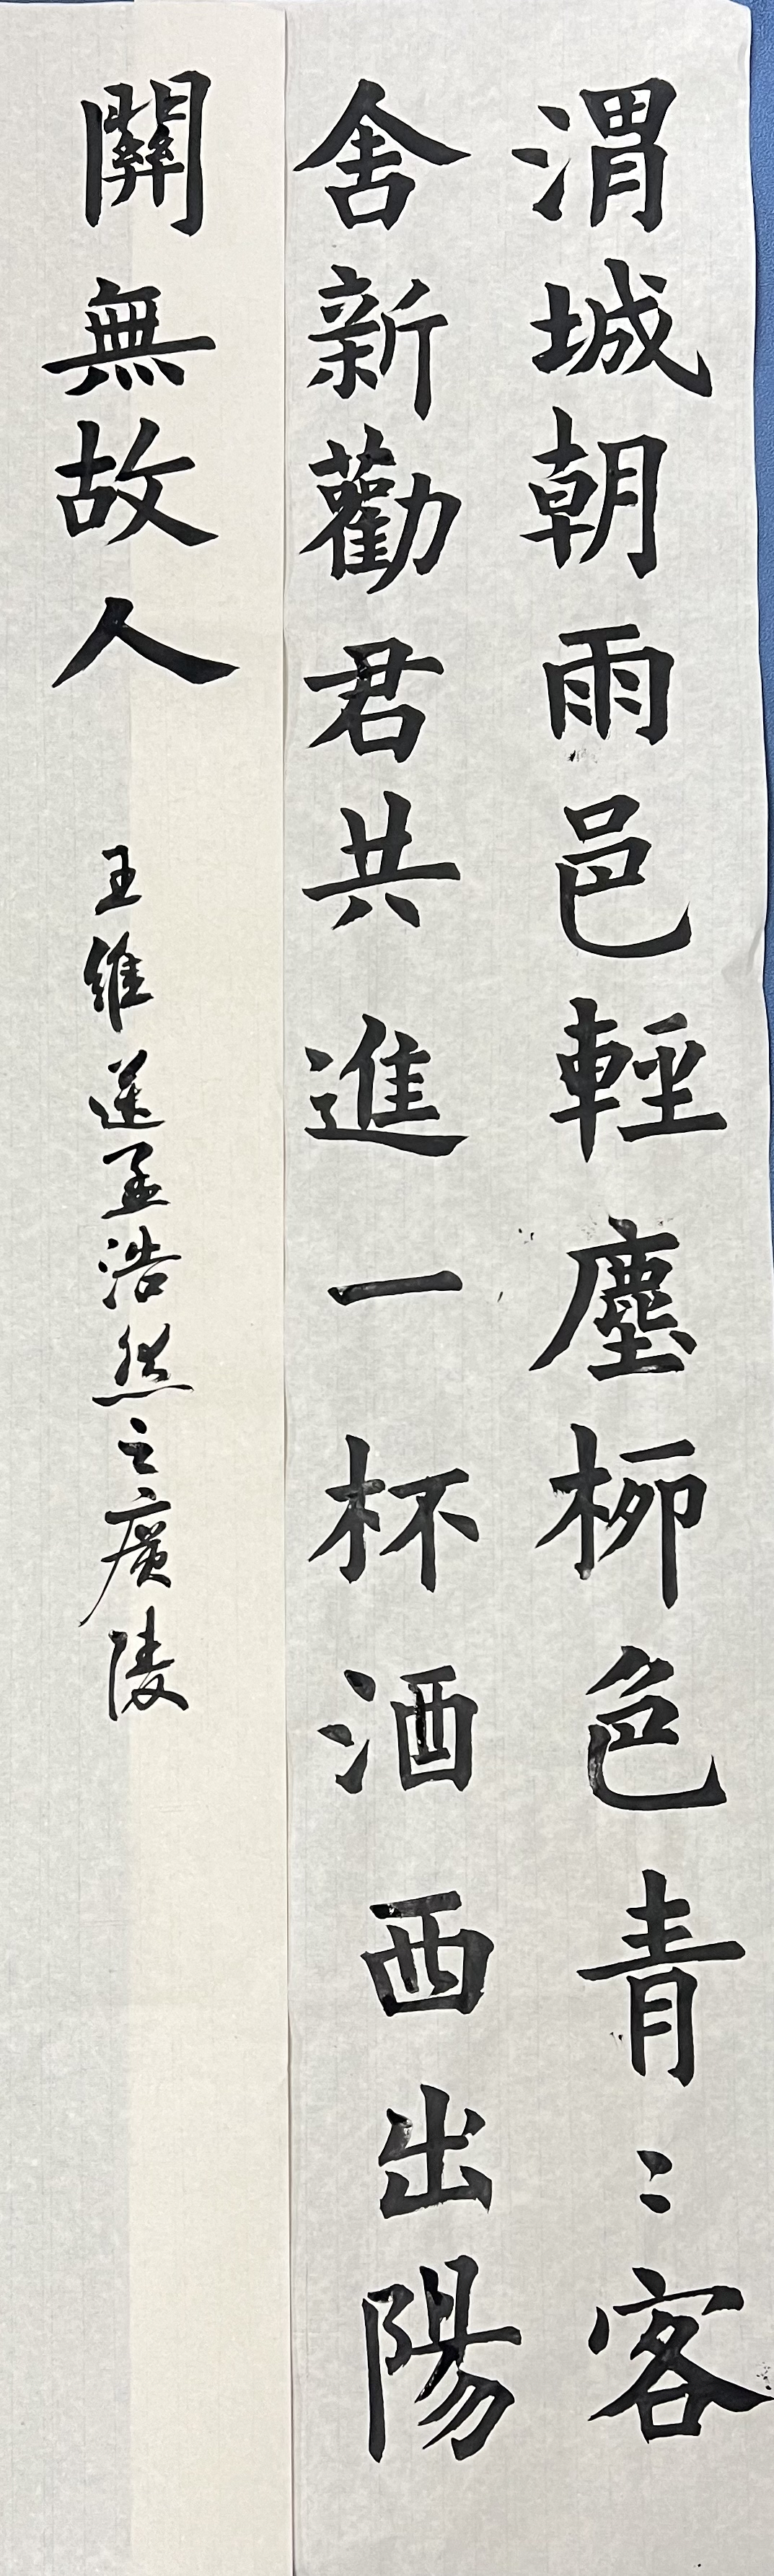 渭城朝雨邑輕塵柳色青〻客
舍新勸君共進一杯酒西出陽
關無故人
王維送孟浩然之廣陵